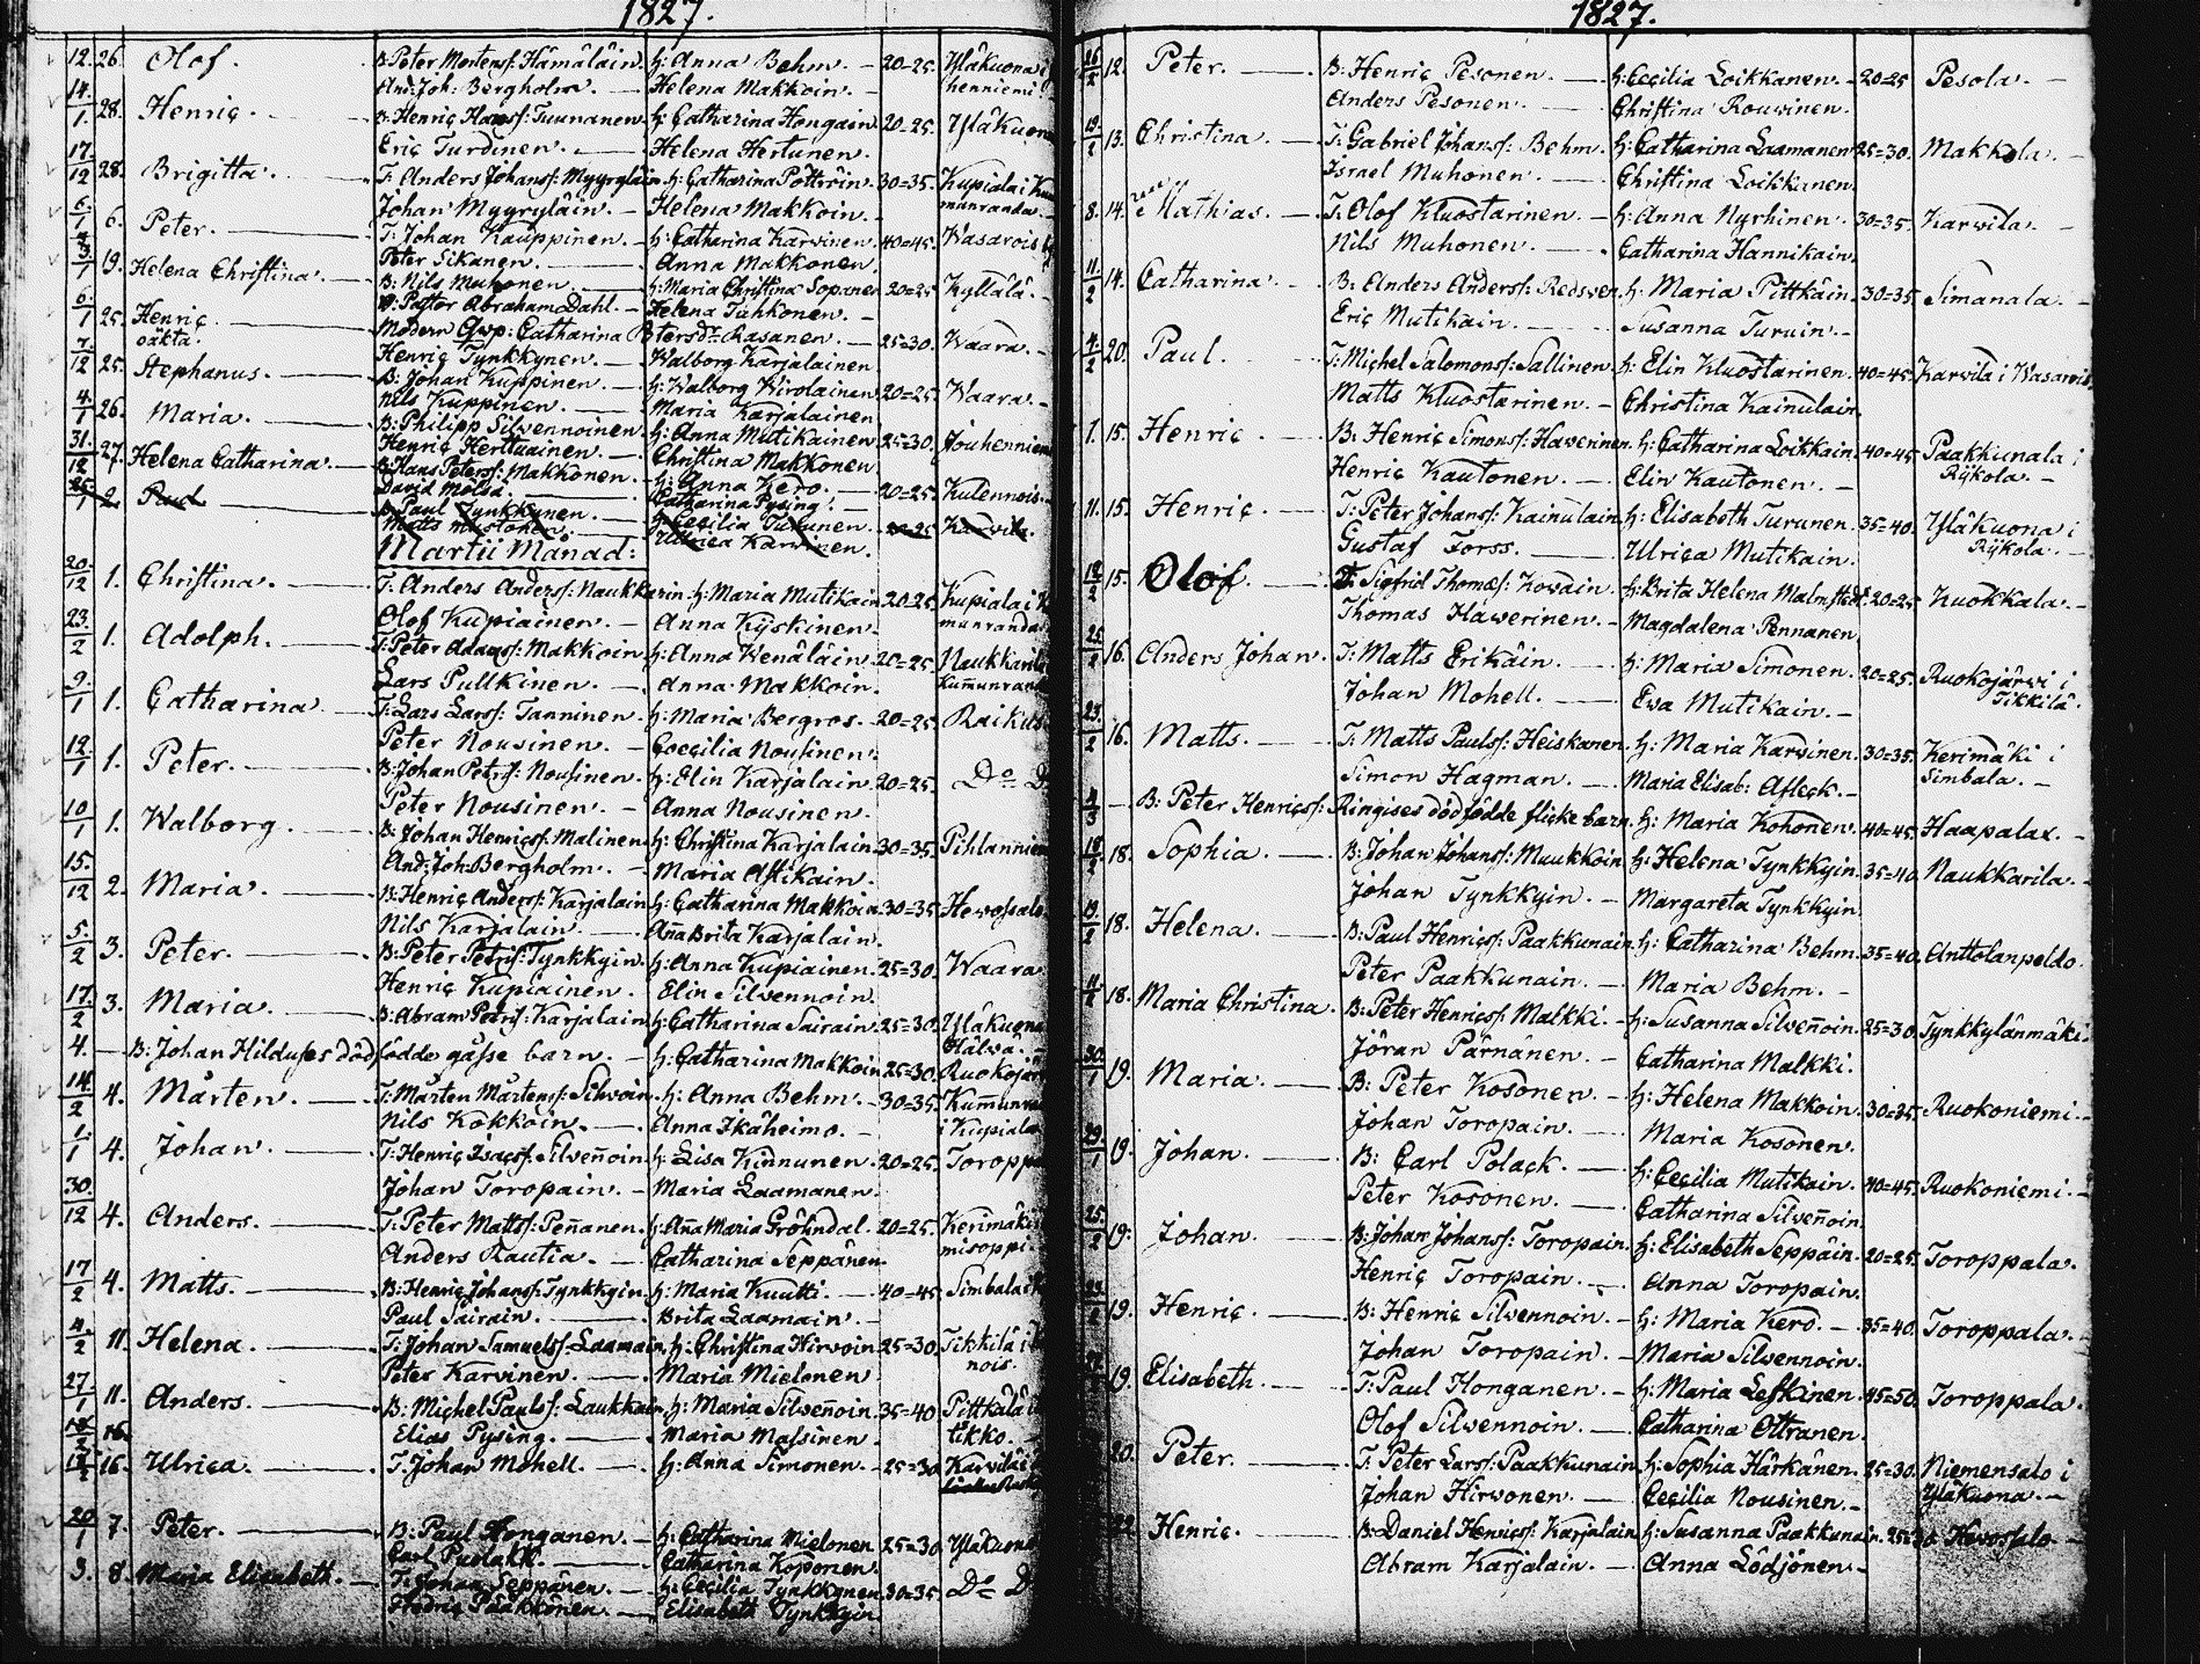 1827.
12. 26. Olof. B: Peter Mortens: Hämäläin. h: Anna Behm. 20=25. Yläkuona i
And: Joh: Bergholm. Helena Makkoin. henniemi.
14/1 28. Henric. B: Henric Hanss: Tuunanen. h: Catharina Hongain. 20=25.
Eric Turdinen. Helena Hertunen.
17/12 28. Brigitta. T: Anders Johanss: Myyryläin. h: Catharina Pöttröin. 30=35. Kupiala i
Johan Myyryläin. Helena Makkoin. munranda.
6/1 6. Peter. T: Johan Kauppinen. h: Catharina Karvinen. 40=45. Wasarois
Peter Sikanen. Anna Makkonen.
3/1 19. Helena Christina. B: Nils Muhonen. h: Maria Christina Sopanen 20=25 Kyllälä.
V: Pastor Abraham Dahl. Helena Tuhkonen.
6/1 25. Henric Modern Qwp: Catharina Petersdr Rasanen. 25=30. Waara.
oäkta. Henric Tynkkynen. Walborg Karjalainen
7/12 25. Stephanus. B: Johan Kuppinen. h: Walborg Wirolainen 20=25. Waara.
Nils Kuppinen. Maria Karjalainen
4/1 26. Maria. B: Philipp Silvennoinen. h: Anna Mutikainen 25=30. Jouhennien
Henric Herttuainen. Christina Makkonen
31/12 27. Helena Catharina. B: Hans Peterss: Makkonen. h: Anna Kero. 20=25. Kulennois.
David Mölsä. Catharina Pysing.
2. Paul B: Paul Tynkkynen. h: Cecilia Turunen. 20=25 Karvila.
Matts Mustonen. Ulrica Karvinen.
Martii Månad:
20/12 1. Christina. T: Anders Anderss: Naukkarin. h: Maria Mutikain 20=25. Kupiala i
Olof Kupiainen. Anna Kyskinen. munranda
23/2 1. Adolph. T: Peter Adams: Makkoin. h: Anna Wenäläin. 20=25. Naukkarila
Lars Pullkinen. Anna Makkoin. Kum̄unran
9/1 1. Catharina. T: Lars Larss: Tanninen. h: Maria Bergros. 20=25.
Peter Nousinen. Coecilia Nousinen.
12/1 1. Peter. B: Johan Petrss: Nousinen. h: Elin Karjalain 20=25. Do D
Peter Nousinen. Anna Nousinen.
10/1 1. Walborg. B: Johan Henricss: Malinen. h: Christina Karjalain. 30=35. Pihlannien
And: Joh: Bergholm. Maria Astikain.
15/12 2. Maria. B: Henric Anderss: Karjalain h: Catharina Makkoin 30=35. Hewossalo
Nils Karjalain. Añna Brita Karjalain.
5/2 3. Peter. B: Peter Petrss: Tynkkyin. h: Anna Kupiainen. 25=30. Waara
Henric Kupiainen. Elin Silvennoin.
17/2 3. Maria. B: Abram Petrss: Karjalain h: Catharina Sairain 25=30. Yläkuona
Hälwä.
4. B: Johan Hilduses dödfödde gåsse barn. h: Catharina Makkoin 25=30. Ruokojär
14/2 4. Mårten. T: Mårten Mårtenss: Silvoin. h: Anna Behm. 30=35. Kum̄unra
Nils Kokkoin. Anna Ikäheimo. i Kupiala
1/1 4. Johan. T: Henric Isacss: Silven̄oin. h: Lisa Kinnunen. 20=25. Toropp
Johan Toropain. Maria Laamanen.
30/12 4. Anders. T: Peter Mattss: Pen̄anen. h: An̄a Maria Gröhndal. 20=25. Kerimäki
Anders Rautia. Catharina Seppänen. misoppi.
17/2 4. Matts. B: Henric Johanss: Tynkkyin. h: Maria Kuutti. 40=45. Simbala i
Paul Sairain. Brita Laamain.
4/2 11. Helena. T: Johan Samuelss: Laamain. h: Christina Hirvoin 25=30. Tikkilä i
Peter Karvinen. Maria Mielonen nois.
27/1 11. Anders. B: Michel Paulss: Laukkain h: Maria Silven̄oin. 35=40 Pittkälä
Elias Pysing. Maria Massinen. tikko.
16. Ulrica. T: Johan Mohell. h: Anna Simonen. 25=30
20/1 7. Peter. B: Paul Honganen. h: Catharina Mielonen 25=30 Yläkuona
Carl Puolakk. Catharina Koponen.
3. 8. Maria Elisabeth. T: Johan Seppänen. h: Cecilia Tynkkynen 30=35. Do D
Fredric Pääkkönen. Elisabeth Tynkkyin.
1827.
26/2 12. Peter. B: Henric Pesonen. h: Cecilia Loikkanen. 20=25 Pesola.
Anders Pesonen. Christina Rouvinen.
19/2 13. Christina. T: Gabriel Johanss: Behm. h: Catharina Laamanen 25=30. Makkola.
Israel Muhonen. Christina Loikkanen.
8. 14. Mathias. T: Olof Kluostarinen. h: Anna Nyrhinen. 30=35. Karvila.
Nils Muhonen. Catharina Hannikain.
11/2 14. Catharina. B: Anders Anderss: Redsven. h: Maria Pittkäin. 30=35 Simanala.
Eric Mutikain. Susanna Turuin.
4/2 20. Paul. T: Michel Salomonss: Sallinen. h: Elin Kluostarinen. 40=45. Karvila i Wasarois.
Matts Kluostarinen. Christina Kainulain.
1. 15. Henric. B: Henric Simonss: Haverinen. h: Catharina Loikkain. 40=45. Paakkunala i
Henric Kautonen. Elin Kautonen. Rÿkola.
11. 15. Henric. T: Peter Johanss: Kainulain. h: Elisabeth Turunen. 35=40. Yläkuona i
Gustaf Forss. Ulrica Mutikain. Rÿkola.
12/2 15. Olof. T: Sigfrid Thomass: Kovain. h: Brita Helena Malmstedt. 20=25 Kuokkala.
Thomas Häwerinen. Magdalena Pennanen.
25/2 16. Anders Johan. T: Matts Erikäin. h: Maria Simonen. 20=25. Ruokojärvi i
Johan Mohell. Ewa Mutikain. Tikkilä.
23/2 16. Matts. T: Matts Paulss: Heiskanen. h: Maria Karvinen. 30=35. Kerimäki i
Simon Hagman. Maria Elisab: Afleck. Simbala.
4/3 B: Peter Henricss: Ringises dödfödde flicke barn. h: Maria Kohonen. 40=45. Haapalax.
18. Sophia. B: Johan Johanss: Muukkoin h: Helena Tynkkyin. 35=40. Naukkarila.
Johan Tynkkyin. Margareta Tynkkyin.
19/2 18. Helena. B: Paul Henricss: Paakkunain. h: Catharina Behm. 35=40. Anttolanpeldo.
Peter Paakkunain. Maria Behm.
18. Maria Christina. B: Peter Henricss: Malkki. h: Susanna Silven̄oin. 25=30. Tynkkylänmäki.
Jöran Pärnänen. Catharina Malkki.
30/1 19. Maria. B: Peter Kosonen. h: Helena Makkoin. 30=35. Ruokoniemi.
Johan Toropain. Maria Kosonen.
29/1 19. Johan. B: Carl Polack. h: Cecilia Mutikain. 40=45. Ruokoniemi.
Peter Kosonen. Catharina Silven̄oin.
25/2 19. Johan. B: Johan Johanss: Toropain. h: Elisabeth Seppäin. 20=25. Toroppala.
Henric Toropain. Anna Toropain.
19. Henric. B: Henric Silvennoin. h: Maria Kero. 35=40. Toroppala.
Johan Toropain. Maria Silvennoin.
19. Elisabeth. T: Paul Honganen. h: Maria Leskinen. 45=50. Toroppala.
Olof Silvennoin. Catharina Ottranen.
20. Peter. T: Peter Larss: Paakkunain. h: Sophia Härkänen. 25=30. Niemensalo i
Johan Hirvonen. Cecilia Nousinen. Yläkuona.
22. Henric. B: Daniel Henricss: Karjalain. h: Susanna Paakkunain. 25=30. Hevossalo
Abram Karjalain. Anna Lödjönen.